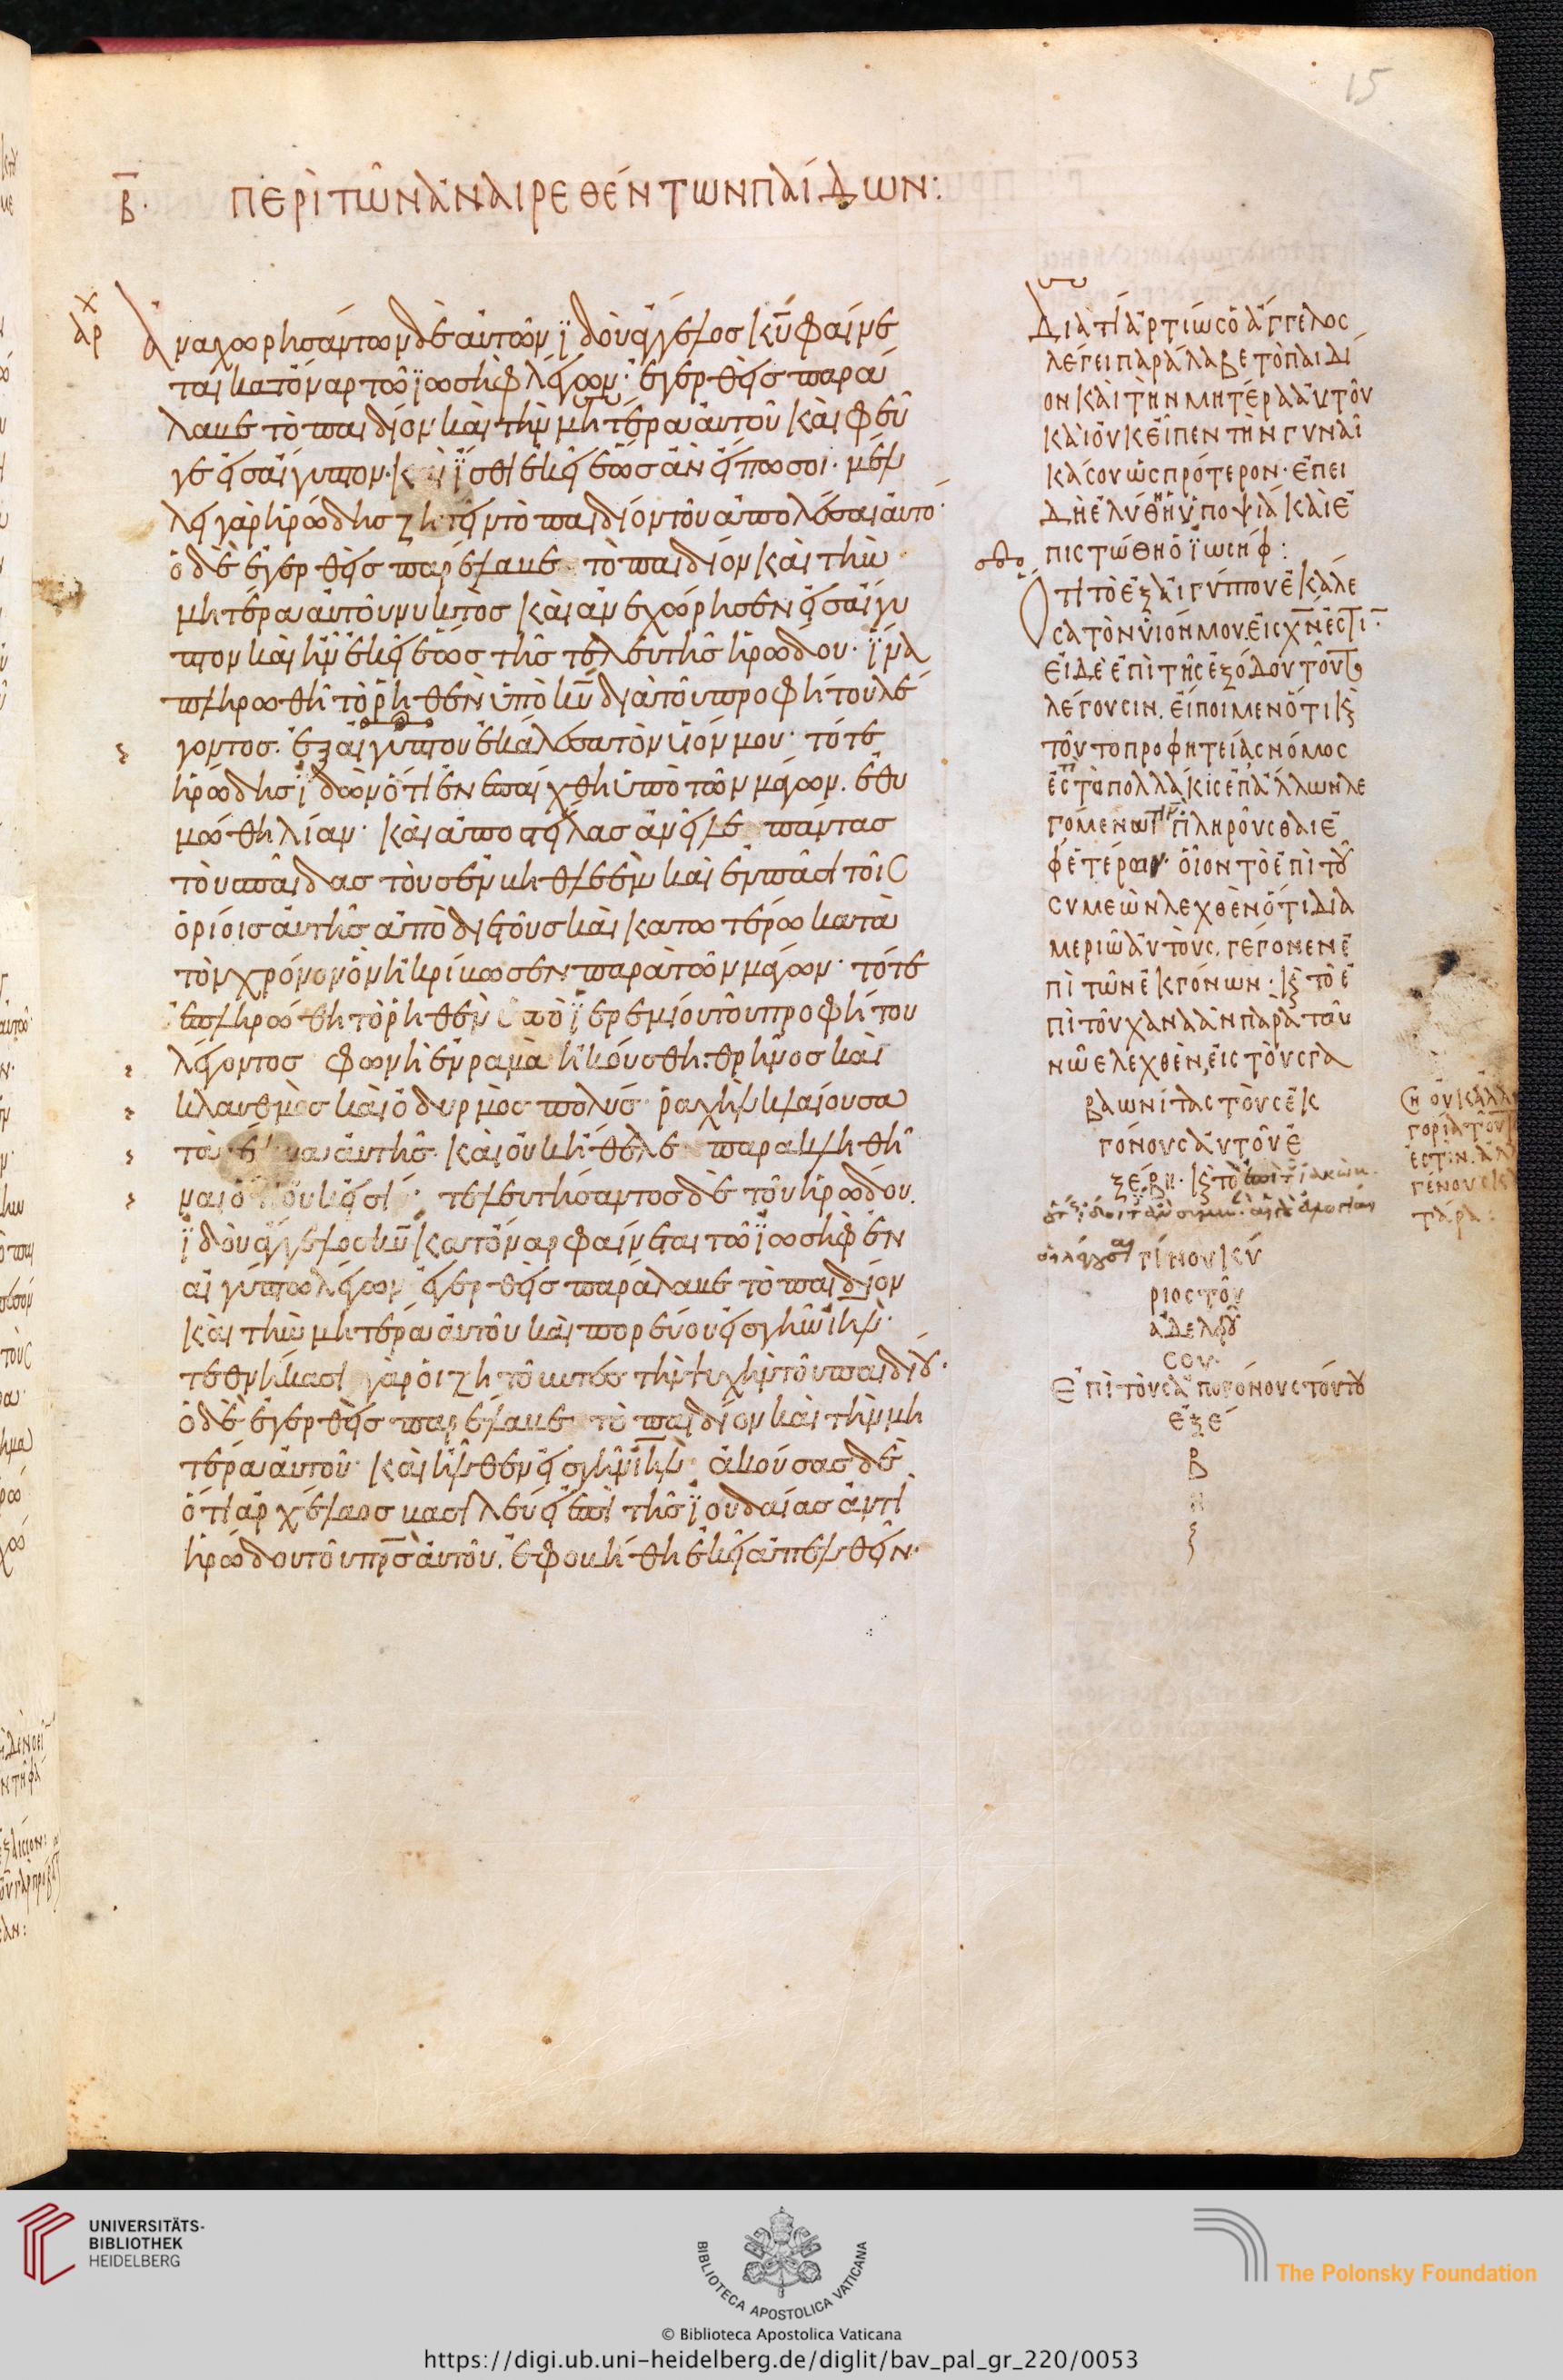 15
β· ΠΕΡῚ ΤΩ͂Ν ἈΝΑΙΡΕΘΈΝΤΩΝ ΠΑΊΔΩΝ:
χ
αρ
ἀναχωρησάντων δὲ αὐτῶν ϊδοὺ ἄγγελος κυ φαίνε
ται κατόναρ τῶ ϊωσὴφ λέγων· ἐγερθεὶς παρά
λαβε τὸ παιδίον καὶ τὴν μητέρα αὐτοῦ καὶ φεῦ
γε εἰς αἴγυπτον· καὶ ἴσθι ἐκεῖ ἕως ἂν εἴπω σοι· μέλ
λει γὰρ ἡρώδης ζητεῖν τὸ παιδίον τοῦ ἀπολέσαι αὐτό·
ὁ δὲ ἐγερθεὶς παρέλαβε τὸ παιδίον καὶ τὴν
μητέρα αὐτοῦ νυκτὸς καὶ ἀνεχώρησεν εἰς αἴγυ
πτον καὶ ἦν ἐκεῖ ἕως τῆς τελευτῆς ἡρώδου· ἵνα
πληρωθῆ τὸ ῥηθὲν ὑπὸ κυ διὰ τοῦ προφήτου λέ
γοντος· ἐξ αἰγύπτου ἐκάλεσα τὸν υἱόν μου· τότε
ἡρώδης ϊδὼν ὅτι ἐνεπαίχθη ὑπὸ τῶν μάγων· ἐθυ
μώθη λίαν· καὶ ἀποστείλας ἀνεῖλε πάντας
τοὺς παῖδας τοὺς ἐν βηθλεὲμ καὶ ἐν πᾶσι τοῖς
ὁρίοις αὐτῆς ἀπὸ διετοῦς καὶ κατωτέρω κατὰ
τὸν χρόνον ὃν ἠκρίβωσεν παρὰ τῶν μάγων· τότε
ἐπληρώθη τὸ ῥηθὲν ὑπὸ ϊερεμίου τοῦ προφήτου
λέγοντος φωνὴ ἐν ραμὰ ἠκούσθη· θρῆνος καὶ
κλαυθμὸς καὶ ὀδυρμὸς πολύς· ῥαχὴλ κλαίουσα
τὰ τέκνα αὐτῆς· καὶ οὐκ ἤθελε παρακληθῆ
ναι ὅτι οὐκ εἰσί· τελευτήσαντος δὲ τοῦ ἡρώδου·
ϊδοὺ ἄγγελος κυ κατόναρ φαίνεται τῶ ϊωσὴφ ἐν
αἰγύπτω λέγων ἐγερθεὶς παράλαβε τὸ παιδίον
καὶ τὴν μητέρα αὐτοῦ καὶ πορεύου εἰς γῆν ϊηλ·
τεθνήκασι γὰρ οἱ ζητοῦντες τὴν ψυχὴν τοῦ παιδίου·
ὁ δὲ ἐγερθεὶς παρέλαβε τὸ παιδίον καὶ τὴν μη
τέρα αὐτοῦ· καὶ ἦλθεν εἰς γῆν ϊηλ· ἀκούσας δὲ
ὅτι ἀρχέλαος βασιλεύει ἐπὶ τῆς ϊουδαίας ἀντὶ
ἡρώδου τοῦ πρς αὐτοῦ· ἐφοβήθη ἐκεῖ ἀπελθεῖν·
Διατί ἀρτίως ὁ ἄγγελος
λέγει παράλαβε τὸ παιδί
ον καὶ τὴν μητέρα αὐτοῦ
καὶ οὐκ εἶπεν τὴν γυναῖ
κά σου ὡς πρότερον· ἐπει
δὴ ἐλύθη ἡ ὑποψία καὶ ἐ
πιστώθη ὁ ϊωσήφ:
Ὅτι τὸ ἐξ αἰγύπτου ἐκάλε
σα τὸν υἱόν μου εἰς χν ἐστι·
εἰ δὲ ἐπὶ τῆς ἐξόδου τοῦτο
λέγουσιν· εἴποιμεν ὅτι καὶ
τοῦτο προφητείας νόμος
ἐστὶ πολλάκις ἐπ' ἄλλων λε
γόμενα πληροῦσθαι ἐ
φ' ἑτέρων· οἷον τὸ ἐπὶ τοῦ
συμεὼν λεχθὲν ὅτι δια
μεριῶ αὐτούς· γέγονεν ἐ
πὶ τῶν ἐκγόνων· καὶ τὸ ἐ
πὶ τοῦ χαναὰν παρὰ τοῦ
νῶε λεχθὲν, εἰς τοὺς γα
βαωνίτας τοὺς ἐκ
γόνους αὐτοῦ ἐ
ξέβη· καὶ τὸ ἐπὶ τ ϊακὼβ
γίνου κύ
ριος τοῦ
ἀδελφοῦ
σου·
Ἐπὶ τοὺς ἀπογόνους τούτου
ἐξέ
β
η
ξ
© Biblioteca Apostolica Vaticana
https://digi.ub.uni-heidelberg.de/diglit/bav_pal_gr_220/0053
UNIVERSITÄTS-
BIBLIOTHEK
HEIDELBERG
BIBLIOTECA APOSTOLICA VATICANA
The Polonsky Foundation